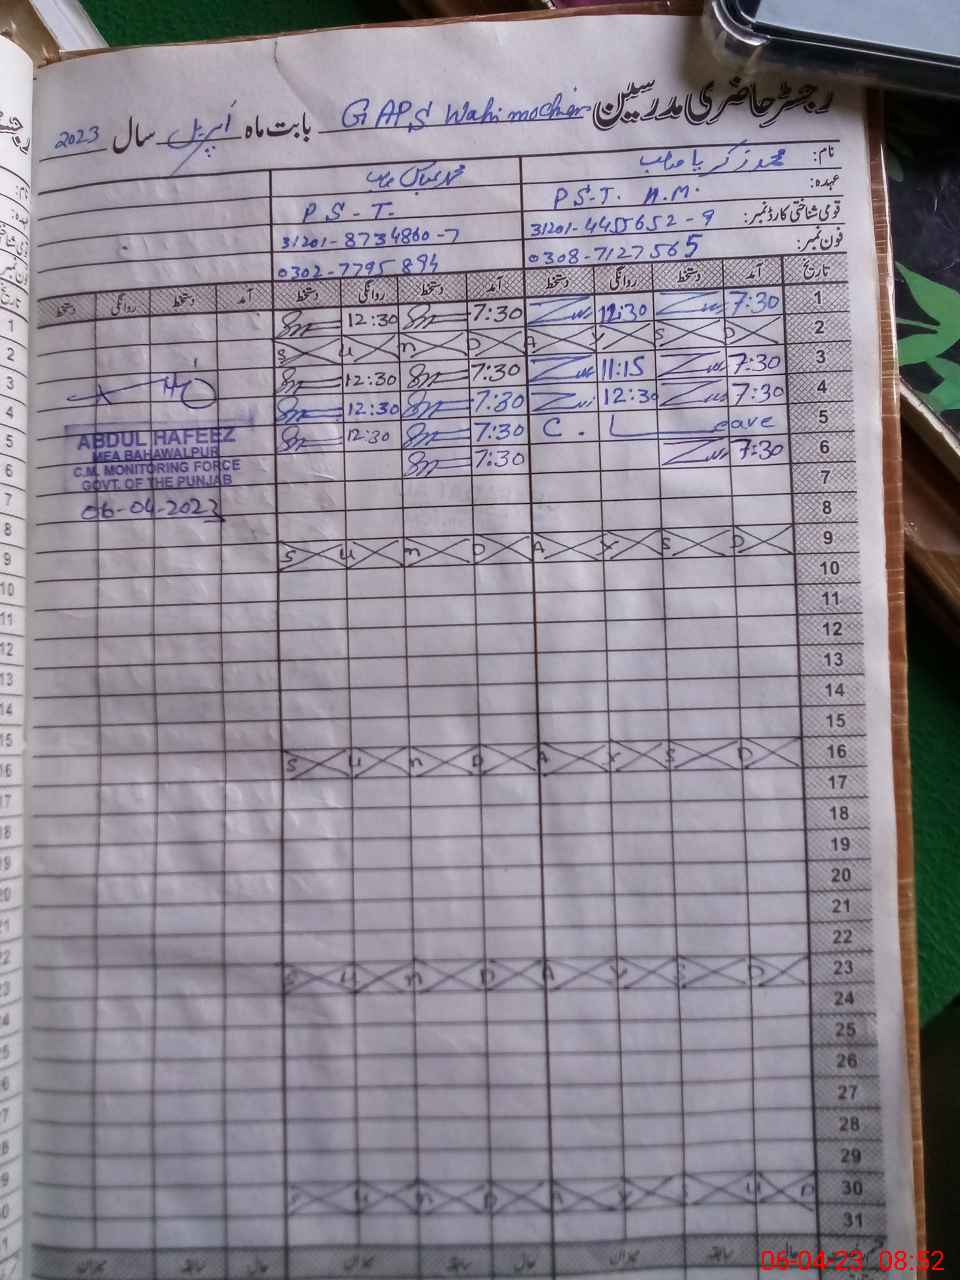 رجسٹر حاضری مدرسین GAPS Wahi mochian بابت ماہ اپریل سال 2023
نام: محمد زکریا صاحب محمد عباس صاحب
عہدہ: P S-T. H.M. P S-T.
قومی شناختی کارڈ نمبر: 31201-4455652-9 31201-8734860-7
فون نمبر: 0308-7127565 0302-7795894
تاریخ آمد دستخط روانگی دستخط آمد دستخط روانگی دستخط آمد دستخط روانگی دستخط
1 7:30 12:30 7:30 12:30
2 S U N D A Y S D
3 7:30 11:15 7:30 12:30
4 7:30 12:30 7:30 12:30
5 C. Leave 7:30 12:30
6 7:30 7:30
7
8
9 S U N D A Y S D
10
11
12
13
14
15
16 S U N D A Y S D
17
18
19
20
21
22
23 S U N D A Y S D
24
25
26
27
28
29
30 U N D A Y S U D
31
ABDUL HAFEEZ
MEA BAHAWALPUR
C.M. MONITORING FORCE
GOVT. OF THE PUNJAB
06-04-2023
حال سابقہ میزان حال سابقہ میزان
06-04-23 08:52